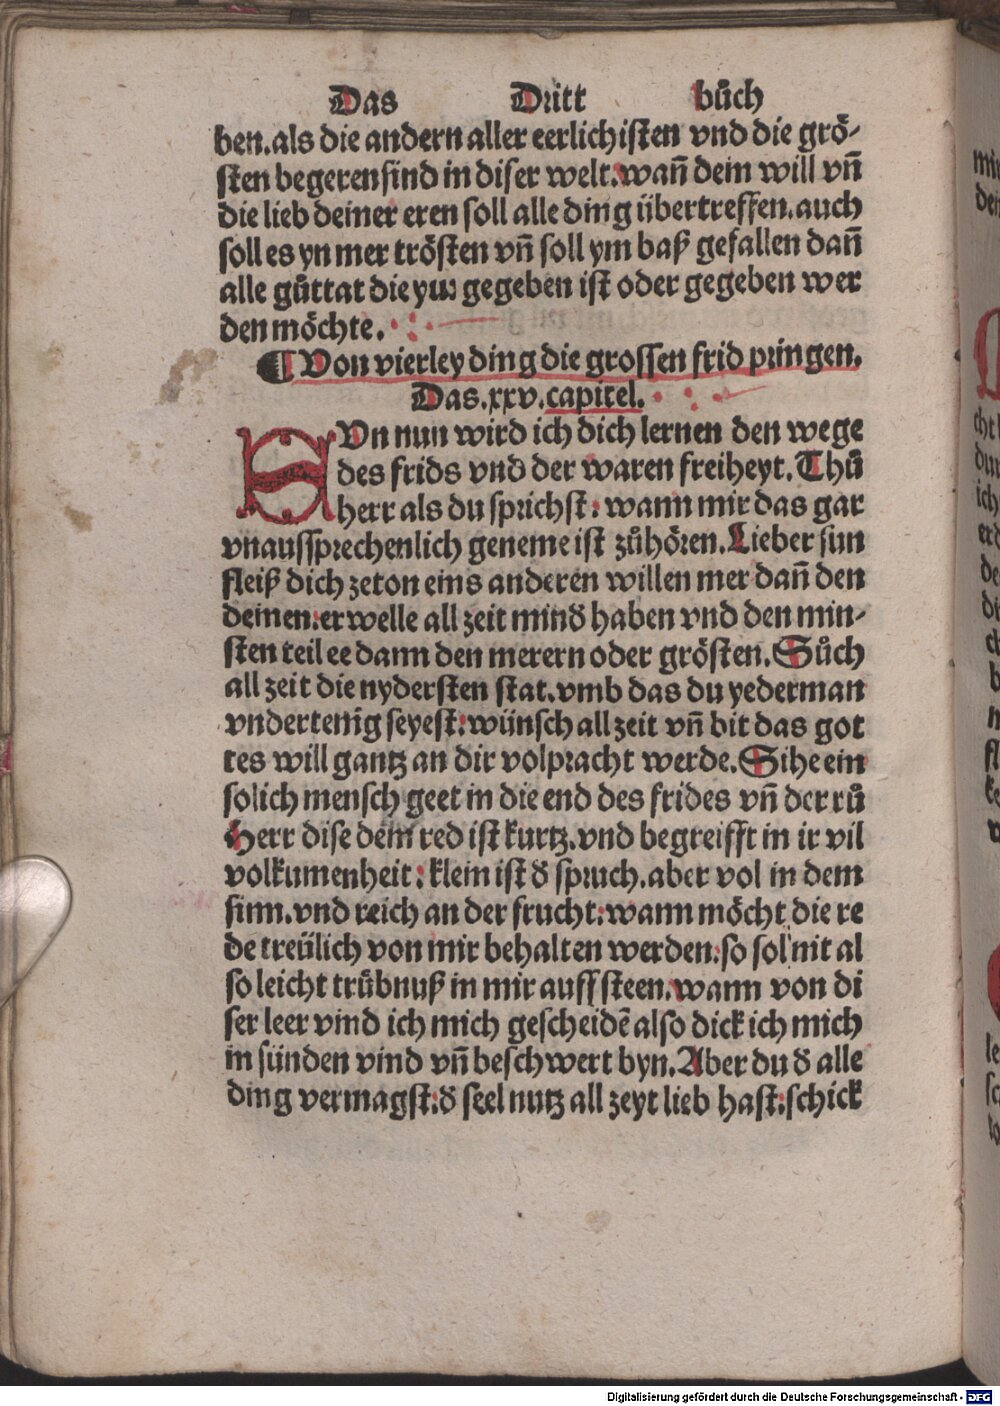 Das Dritt bůch
ben.als die andern aller eerlichisten vnd die grö-
sten begeren sind in diser welt.wañ dein will vñ
die lieb deiner eren soll alle ding übertreffen.auch
soll es yn mer trösten vñ soll ym baß gefallen dañ
alle gůttat die ym gegeben ist oder gegeben wer
den möchte.
¶ Von vierley ding die grossen frid pringen.
Das.xxv.capitel.
SVn nun wird ich dich lernen den wege
des frids vnd der waren freiheyt.Thů
herr als du sprichst: wann mir das gar
vnaussprechenlich geneme ist zůhören.Lieber sun
fleiß dich zeton eins anderen willen mer dañ den
deinen:erwelle all zeit mind haben vnd den min-
sten teil ee dann den merern oder grösten.Sůch
all zeit die nydersten stat.vmb das du yederman
vndertenig seyest:wünsch all zeit vñ bit das got
tes will gantz an dir volpracht werde.Sihe ein
solich mensch geet in die end des frides vñ der rů
Herr dise dein red ist kurtz.vnd begreifft in ir vil
volkumenheit:klein ist đ spruch.aber vol in dem
sinn.vnd reich an der frucht:wann möcht die re
de treülich von mir behalten werden:so sol nit al
so leicht trůbnuß in mir auffsteen.wann von di
ser leer vind ich mich gescheidē also dick ich mich
in sünden vind vñ beschwert byn.Aber du đ alle
ding vermagst:đ seel nutz all zeyt lieb hast:schick
Digitalisierung gefördert durch die Deutsche Forschungsgemeinschaft - DFG